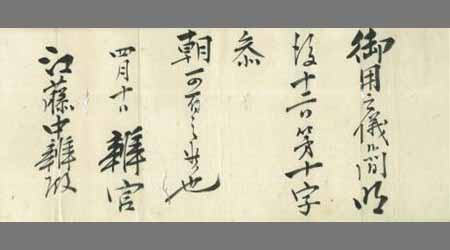 御用之儀候間明
後十二日第十字
参
朝可有之候也
四月十日 辨官
江藤中辨殿